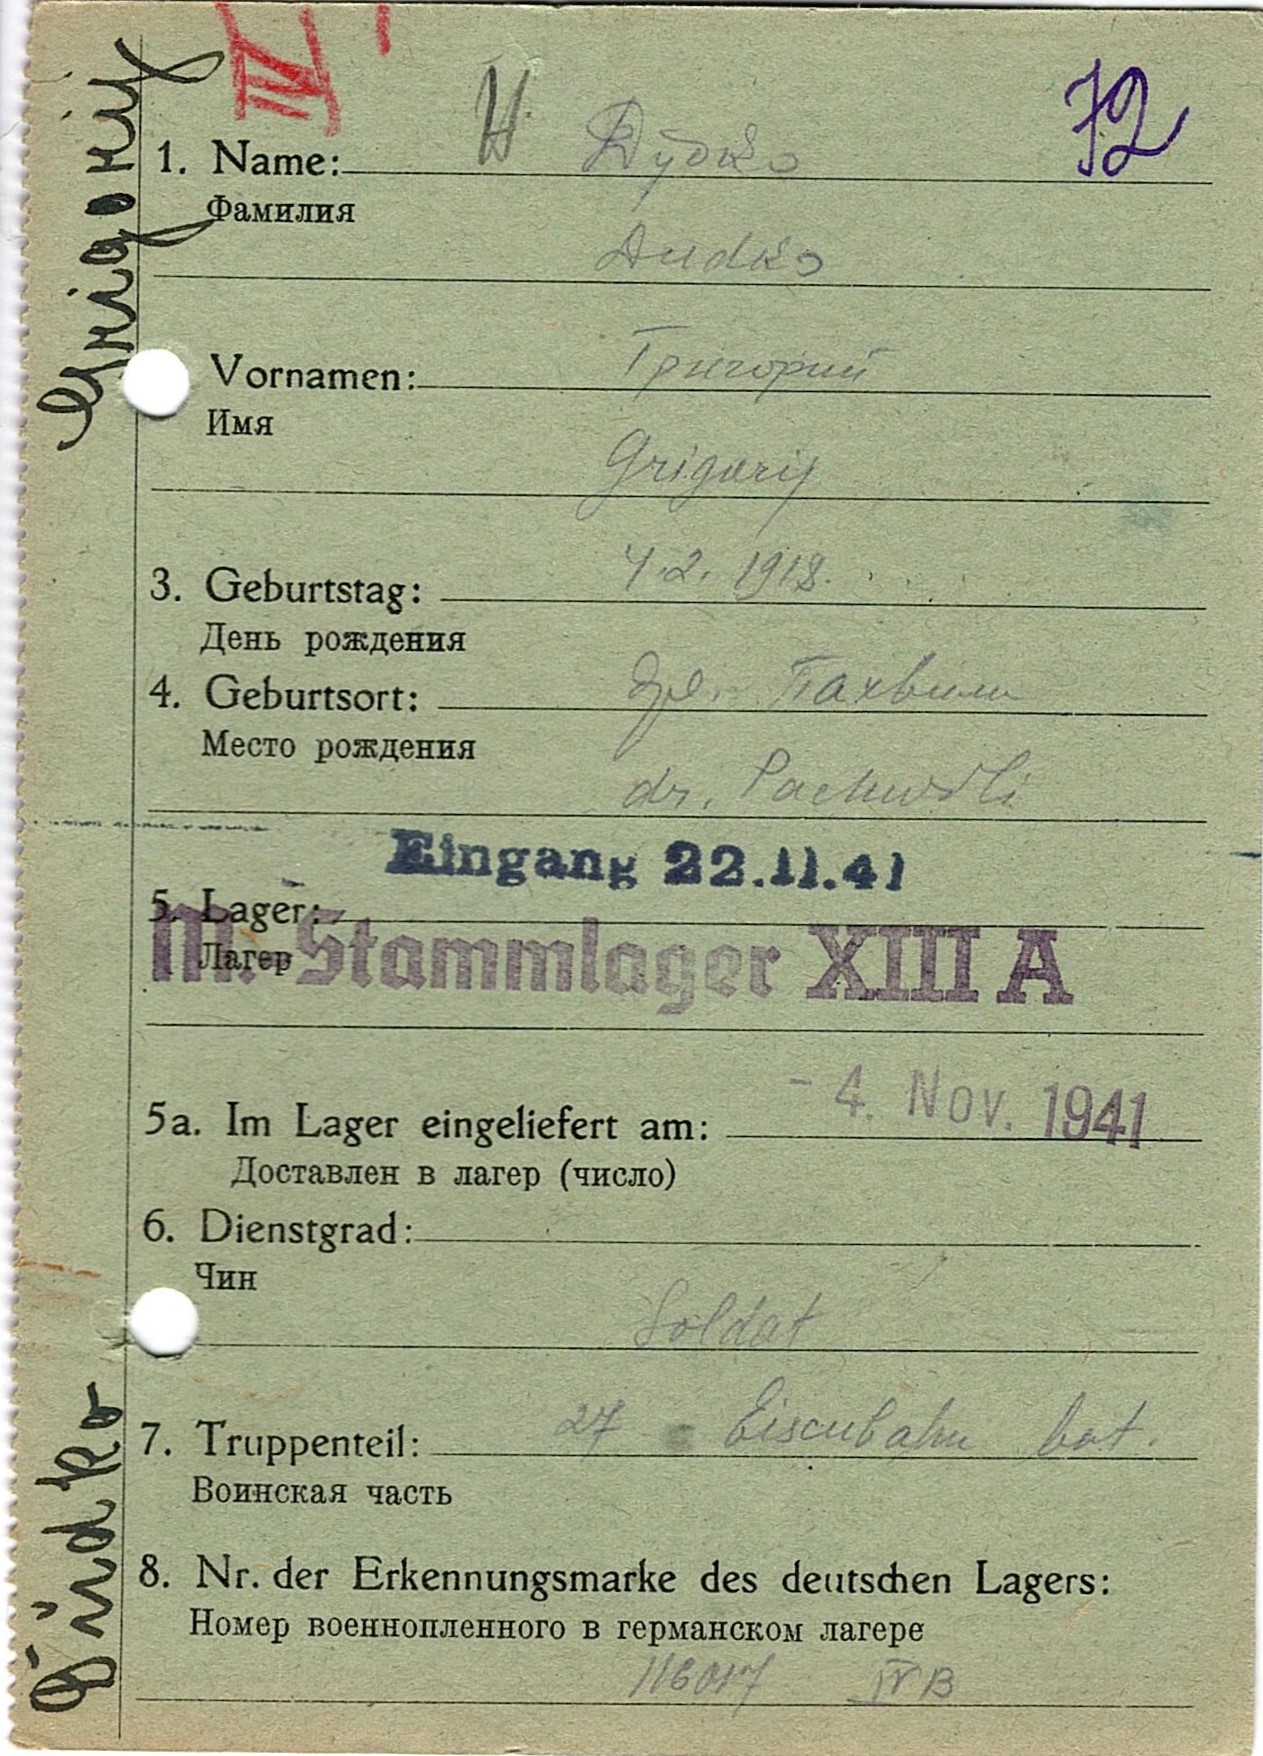 IV
72
1. Name: Дудко
Фамилия
Dudko
Vornamen: Григорий
Имя
Grigorij
3. Geburtstag: 4.2. 1918.
День рождения
4. Geburtsort: др. Пахвили
Место рождения
dr. Pachwili
Eingang 22.11.41
5. Lager:
Лагер
M. Stammlager XIII A
5a. Im Lager eingeliefert am: - 4. Nov. 1941
Доставлен в лагер (число)
6. Dienstgrad:
Чин
Soldat
7. Truppenteil: 27 Eisenbahn bat.
Воинская часть
8. Nr. der Erkennungsmarke des deutschen Lagers:
Номер военнопленного в германском лагере
116017 IV B
Dudko Grigorij